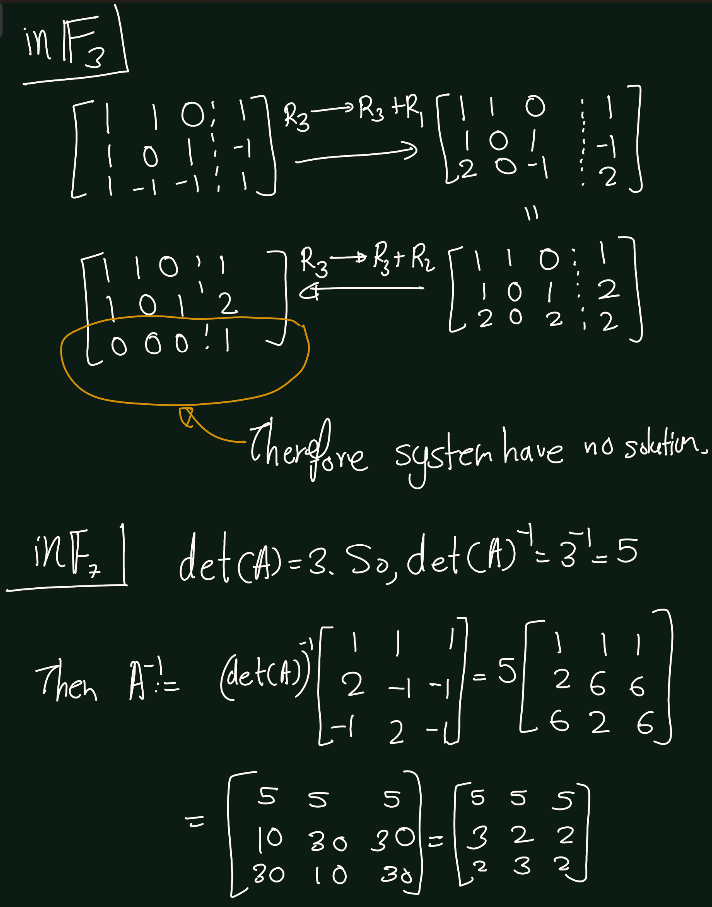 in F₃
[1 1 0 ¦ 1; 1 0 1 ¦ -1; 1 -1 -1 ¦ 1] R₃→R₃+R₁ [1 1 0 ¦ 1; 1 0 1 ¦ -1; 2 0 -1 ¦ 2]
=
[1 1 0 ¦ 1; 1 0 1 ¦ 2; 0 0 0 ¦ 1] R₃→R₃+R₂ [1 1 0 ¦ 1; 1 0 1 ¦ 2; 2 0 2 ¦ 2]
Therefore system have no solution.
in F₇ det(A)=3. So, det(A)⁻¹=3⁻¹=5
Then A⁻¹= (det(A))⁻¹[1 1 1; 2 -1 -1; -1 2 -1] = 5[1 1 1; 2 6 6; 6 2 6]
= [5 5 5; 10 30 30; 30 10 30] = [5 5 5; 3 2 2; 2 3 2]